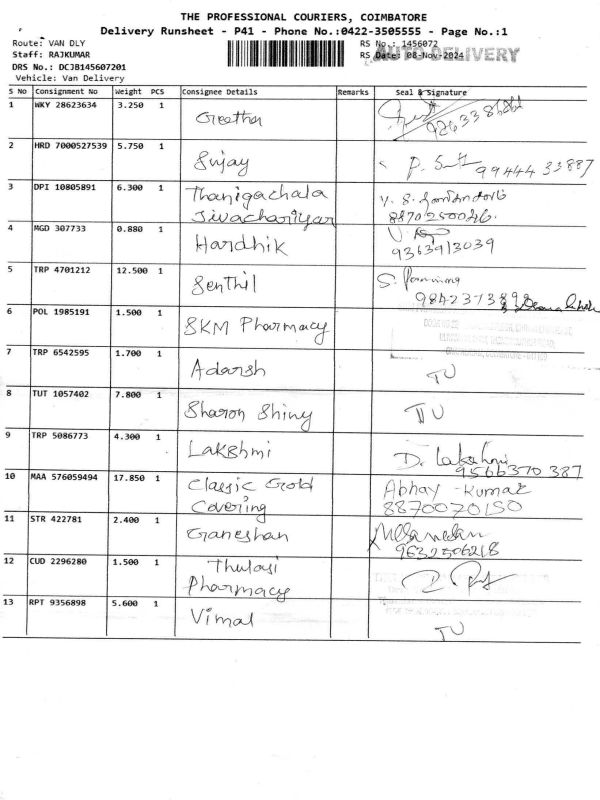 THE PROFESSIONAL COURIERS, COIMBATORE
Delivery Runsheet - P41 - Phone No.:0422-3505555 - Page No.:1
Route: VAN DLY
RS No.: 1456072
Staff: RAJKUMAR
AUTO DELIVERY
RS Date: 08-Nov-2024
DRS No.: DCJB145607201
Vehicle: Van Delivery
S No Consignment No Weight PCS Consignee Details Remarks Seal & Signature
1 WKY 28623634 3.250 1 Geetha
2 HRD 7000527539 5.750 1 Sujay P. 99444 33887
3 DPI 10805891 6.300 1 Thanigachala
Sivachariyar 8870250026
4 MGD 307733 0.880 1 Hardhik
9363913039
5 TRP 4701212 12.500 1 Senthil S.
6 POL 1985191 1.500 1 SKM Pharmacy
7 TRP 6542595 1.700 1 Adarsh TU
8 TUT 1057402 7.800 1 Sharon Shiny TU
9 TRP 5086773 4.300 1 Lakshmi D. Lakshmi
9566370 387
10 MAA 576059494 17.850 1 Classic Gold Abhay - Kumar
Covering 8870070150
11 STR 422781 2.400 1 Ganeshan
9632506218
12 CUD 2296280 1.500 1 Thulasi
Pharmacy
13 RPT 9356898 5.600 1 Vimal TU